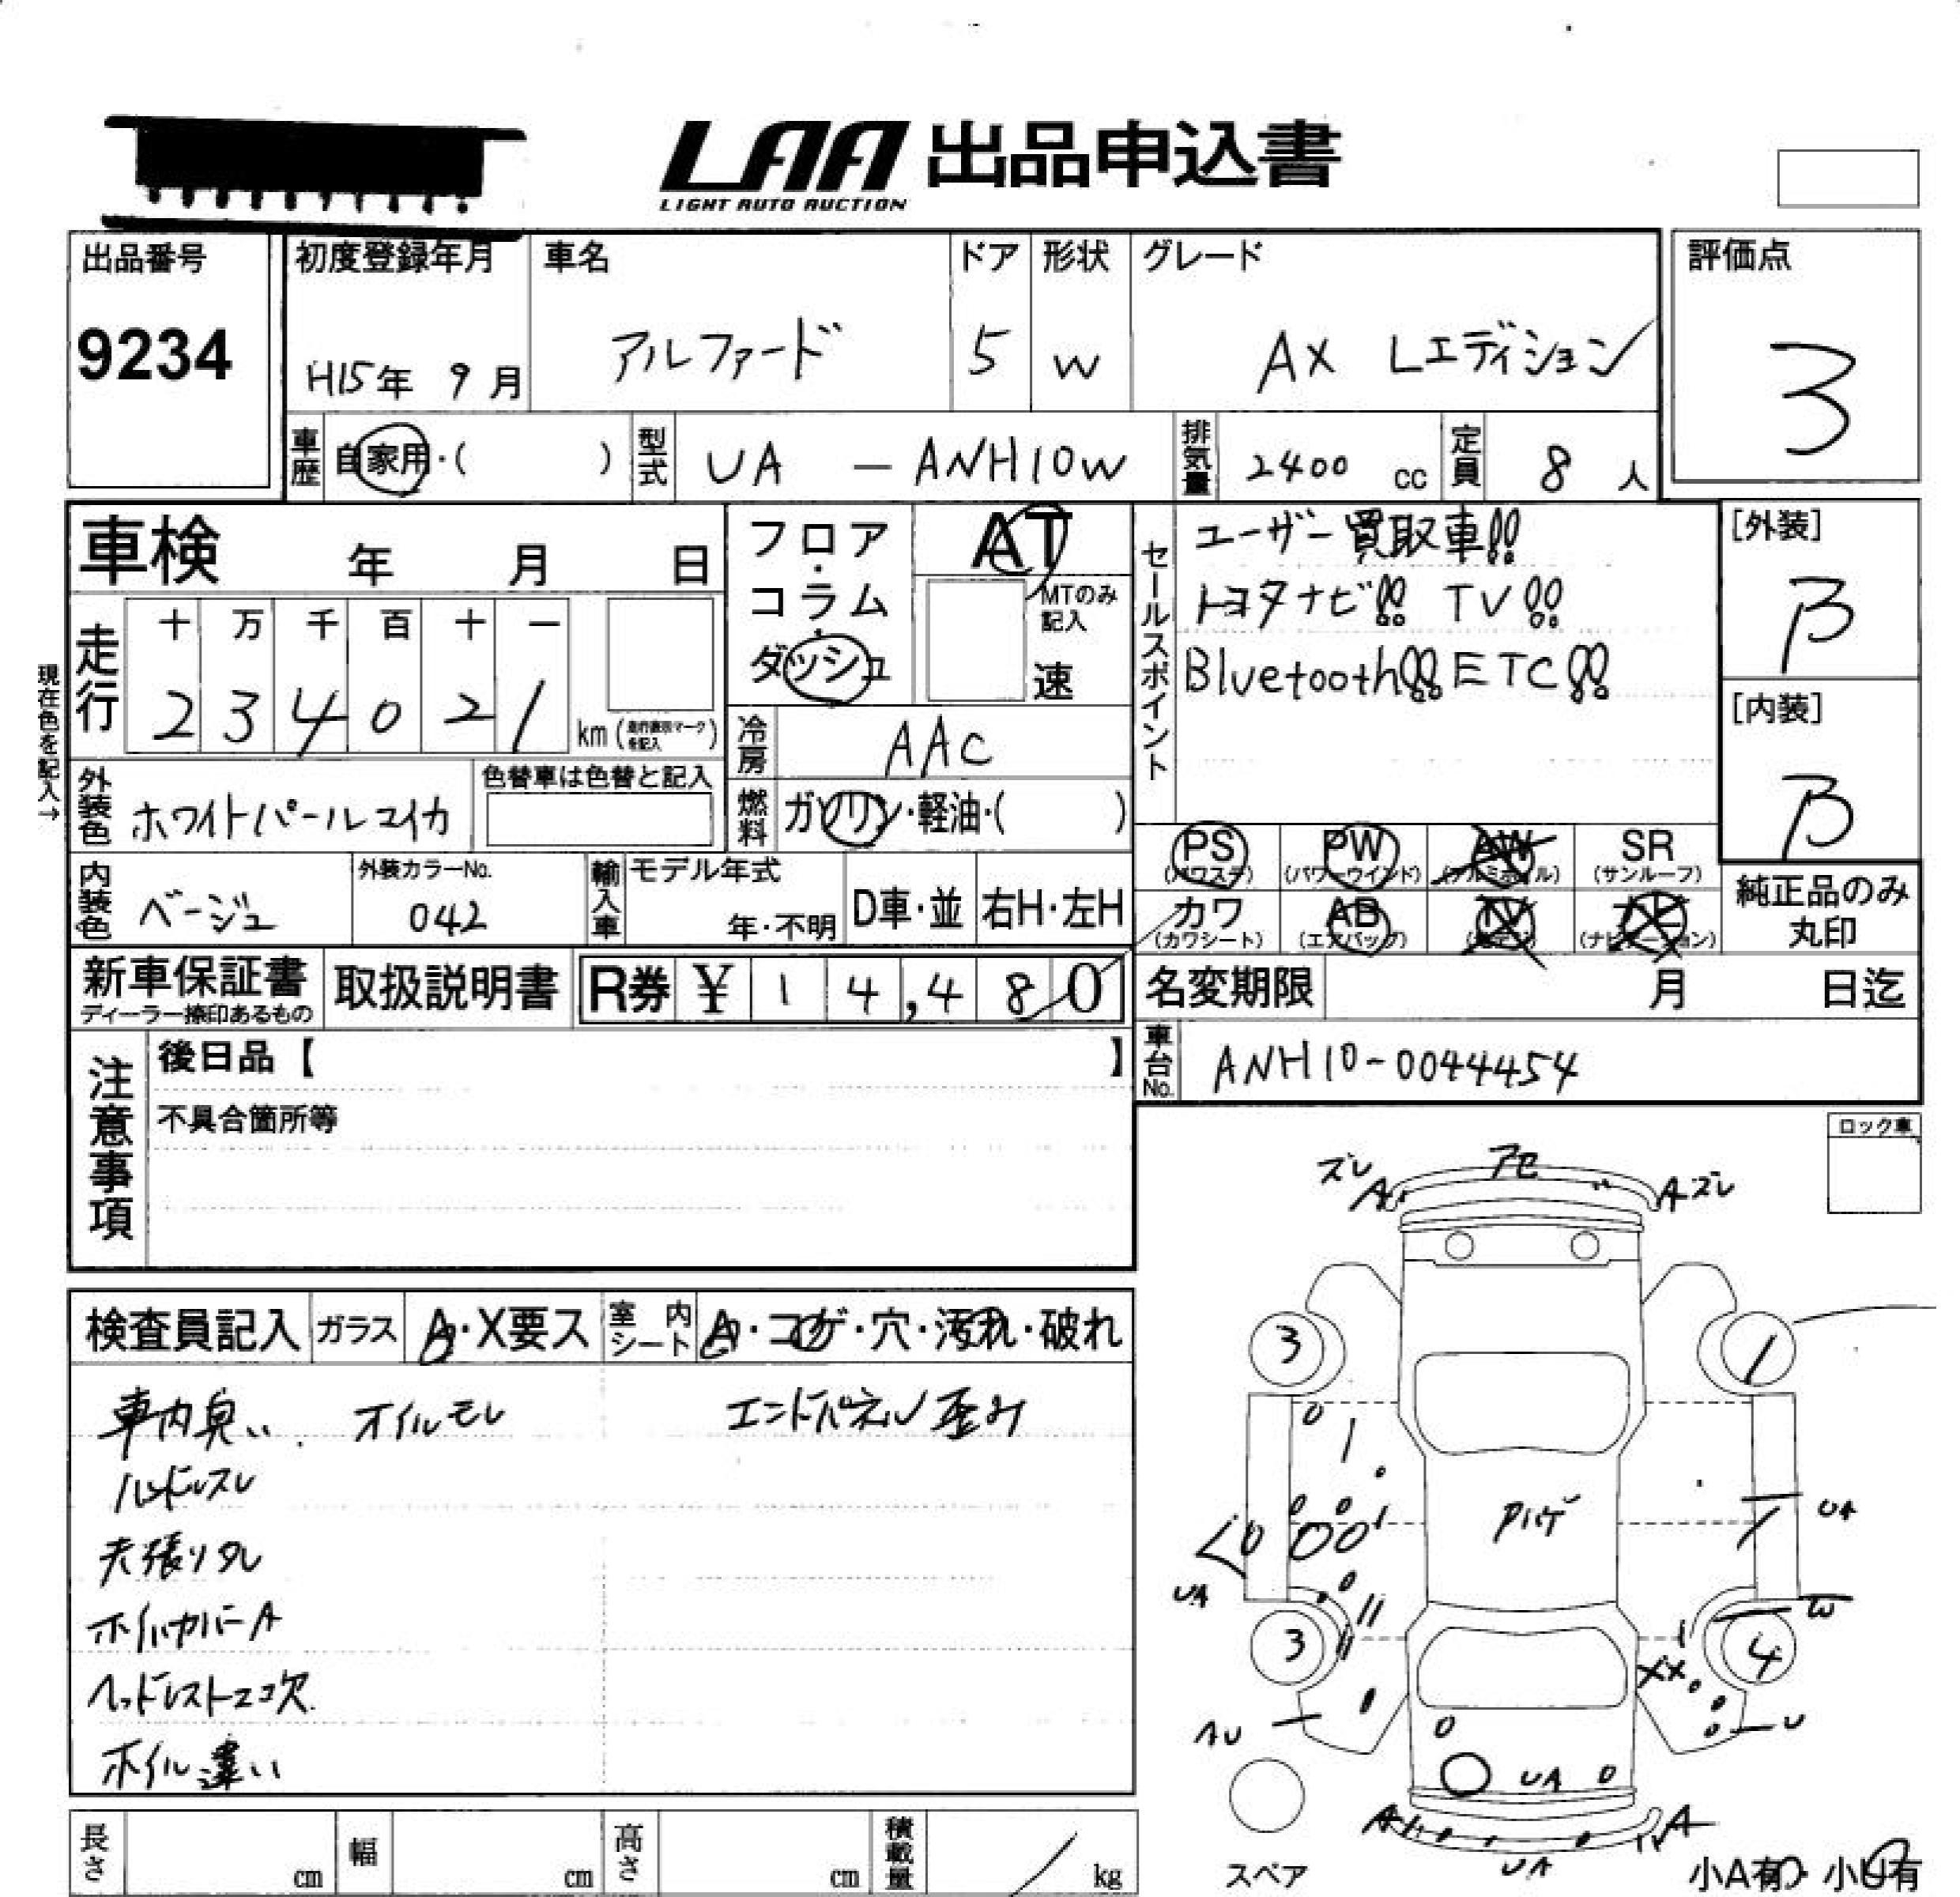 LAA 出品申込書
LIGHT AUTO AUCTION
出品番号 初度登録年月 車名 ドア 形状 グレード 評価点
9234 H15年 9月 アルファード 5 W AX Lエディション 3
車歴 自家用・( ) 型式 UA — ANH10W 排気量 2400 cc 定員 8 人
車検 年 月 日
フロア・コラム・ダッシュ
AT
MTのみ記入
速
セールスポイント
ユーザー買取車!!
トヨタナビ!! TV!!
Bluetooth!! ETC!!
[外装]
β
[内装]
β
現在色を記入→
走行 十 万 千 百 十 一
2 3 4 0 2 1 km (
を記入 )
冷房 AAC
外装色 ホワイトパールマイカ 色替車は色替と記入
燃料 ガソリン・軽油・( )
PS PW AW SR
(パワステ) (パワーウインド) (アルミホイル) (サンルーフ)
カワ AB TV
(カワシート) (エアバッグ) (ナビゲーション)
純正品のみ
丸印
内装色 ベージュ 外装カラーNo. 042 輸入車 モデル年式 年・不明 D車・並 右H・左H
新車保証書 取扱説明書 R券 ¥ 1 4,4 8 0 名変期限 月 日迄
ディーラー捺印あるもの
車台No. ANH10-0044454
注意事項
後日品【 】
不具合箇所等
ロック車
検査員記入 ガラス A・X要ス 室内シート A・コゲ・穴・汚れ・破れ
車内臭い オイルモレ エンドパネル歪み
ハンドルスレ
天張りタレ
ホイルカバーA
ヘッドレスト2コ欠
ホイル違い
ズレ アセ
A Aズレ
3 1
UA
UA
W
3 4
XX
AU U
UA
A A
UA
スペア 小A有・小U有
長さ cm 幅 cm 高さ cm 積載量 kg